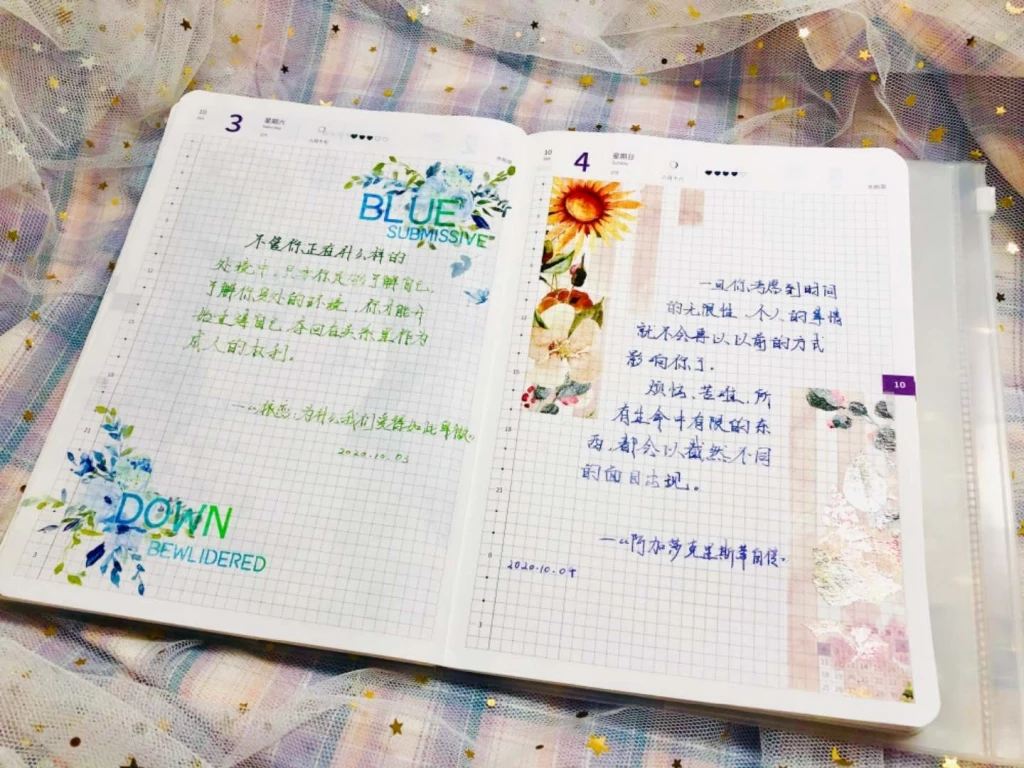 10
3
星期六
Saturday
BLUE
SUBMISSIVE
不管你正在什么样的
处境中,只有你足够了解自己、
了解你身处的环境,你才能开
始主导自己,夺回在关系里作为
成人的权利。
为什么我们爱得如此卑微
2020.10.03
DOWN
BEWLIDERED
10
4
星期日
Sunday
一旦你考虑到时间
的无限性、个人的事情
就不会再以以前的方式
影响你了.
烦恼、苦难、所
有生命中有限的东
西,都会以截然不同
的面目出现。
——《阿加莎克里斯蒂自传》
2020.10.04
10